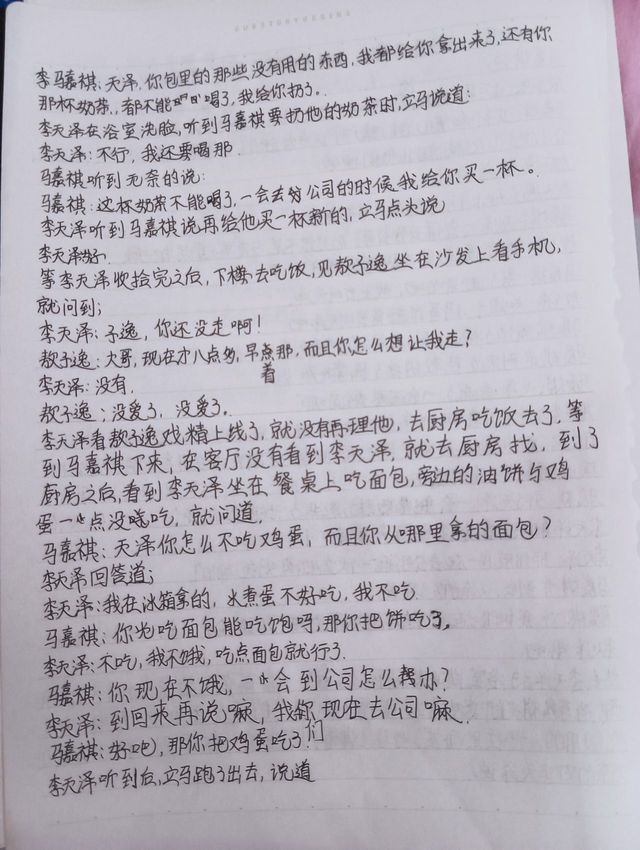 李马嘉祺：天泽，你包里的那些没有用的东西，我都给你拿出来了，还有你
那杯奶茶，都不能喝了，我给你扔了。
李天泽在浴室洗脸，听到马嘉祺要扔他的奶茶时，立马说道：
李天泽：不行，我还要喝那.
马嘉祺听到无奈的说：
马嘉祺：这杯奶茶不能喝了，一会去公司的时候我给你买一杯。
李天泽听到马嘉祺说再给他买一杯新的，立马点头说
李天泽好.
等李天泽收拾完之后，下楼去吃饭，见敖子逸坐在沙发上看手机，
就问到；
李天泽：子逸，你还没走啊！
敖子逸：大哥，现在才八点多，早着那，而且你怎么想让我走？
李天泽：没有.
敖子逸：没爱了，没爱了。
李天泽看敖子逸戏精上线了，就没有再理他，去厨房吃饭去了，等
到马嘉祺下来，在客厅没有看到李天泽，就去厨房找，到了
厨房之后，看到李天泽坐在餐桌上吃面包，旁边的油饼与鸡
蛋一点没吃，就问道.
马嘉祺：天泽你怎么不吃鸡蛋，而且你从哪里拿的面包？
李天泽回答道；
李天泽：我在冰箱拿的，水煮蛋不好吃，我不吃.
马嘉祺：你光吃面包能吃饱吗，那你把饼吃了.
李天泽：不吃，我不饿，吃点面包就行了.
马嘉祺：你现在不饿，一会到公司怎么办？
李天泽：到回来再说嘛，我们现在去公司嘛.
马嘉祺：好吧，那你把鸡蛋吃了
李天泽听到后，立马跑了出去，说道